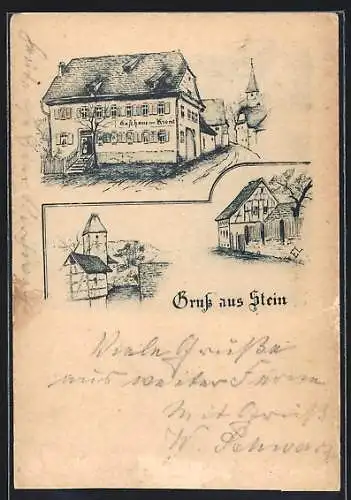 Gasthaus zur Krone
Gruß aus Stein
Viele Grüße
aus weiter Ferne
Mit Gruß
W. Schwarz